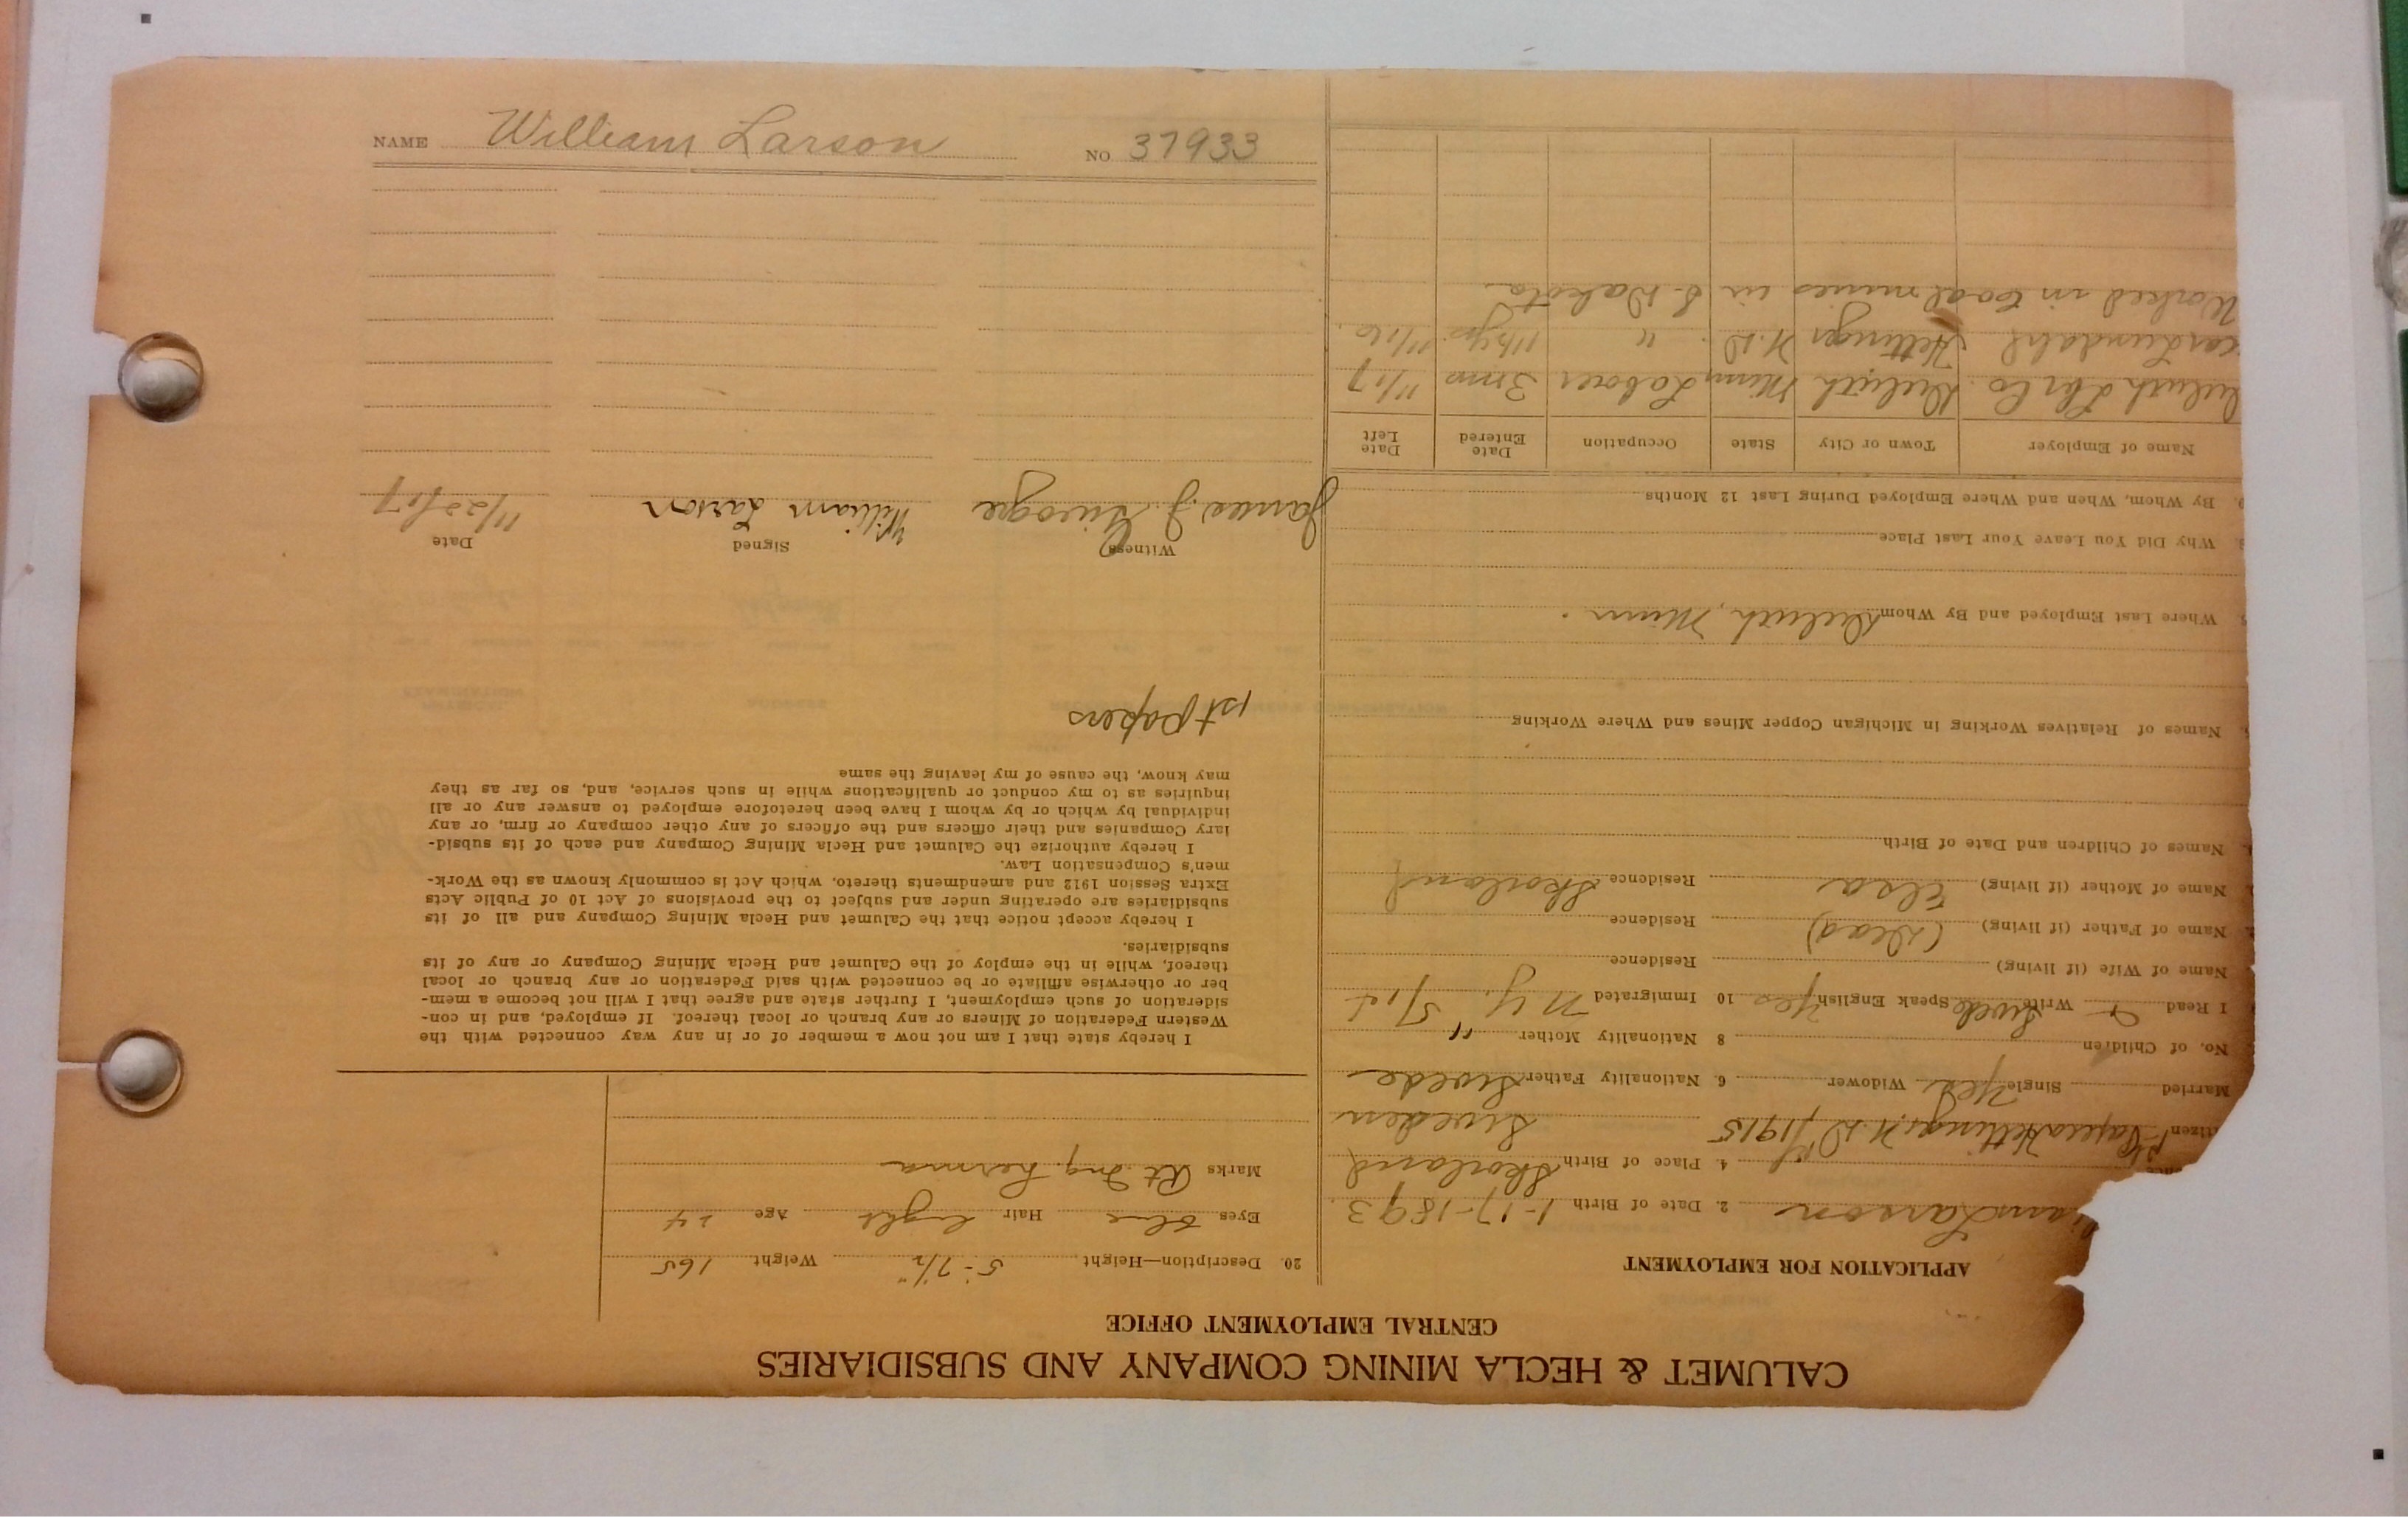 NAME William Larson NO 37933
CALUMET & HECLA MINING COMPANY AND SUBSIDIARIES
CENTRAL EMPLOYMENT OFFICE
APPLICATION FOR EMPLOYMENT
Larson 2. Date of Birth 1-17-1893
4. Place of Birth Skoiland
Hettinger N.D. 1915 Sweden
Married Single Yes Widower 6. Nationality Father Swede
No. of Children 8 Nationality Mother "
I Read Write Swede Speak English Yes 10 Immigrated N.Y.
Name of Wife (if living) Residence
Name of Father (if living) (Dead) Residence
Name of Mother (if living) Elsa Residence Skoiland
Names of Children and Date of Birth
Names of Relatives Working in Michigan Copper Mines and Where Working
Where Last Employed and By Whom Duluth, Minn.
Why Did You Leave Your Last Place
By Whom, When and Where Employed During Last 12 Months
Name of Employer Town or City State Occupation Date Entered Date Left
Duluth Lbr Co. Duluth Minn Laborer 3 mo 11/17
Lundahl Hettinger N.D. " 11/16
Worked in Coal mines in S. Dakota
20. Description—Height 5-7 1/2" Weight 165
Eyes blue Hair light Age 24
Marks Rt. Ing. herma
I hereby state that I am not now a member of or in any way connected with the
Western Federation of Miners or any branch or local thereof. If employed, and in con-
sideration of such employment, I further state and agree that I will not become a mem-
ber or otherwise affiliate or be connected with said Federation or any branch or local
thereof, while in the employ of the Calumet and Hecla Mining Company or any of its
subsidiaries.
I hereby accept notice that the Calumet and Hecla Mining Company and all of its
subsidiaries are operating under and subject to the provisions of Act 10 of Public Acts
Extra Session 1912 and amendments thereto, which Act is commonly known as the Work-
men's Compensation Law.
I hereby authorize the Calumet and Hecla Mining Company and each of its subsid-
iary Companies and their officers and the officers of any other company or firm, or any
individual by which or by whom I have been heretofore employed to answer any or all
inquiries as to my conduct or qualifications while in such service, and, so far as they
may know, the cause of my leaving the same
1st papers
Date Signed Witness
11/22/17 William Larson James J.